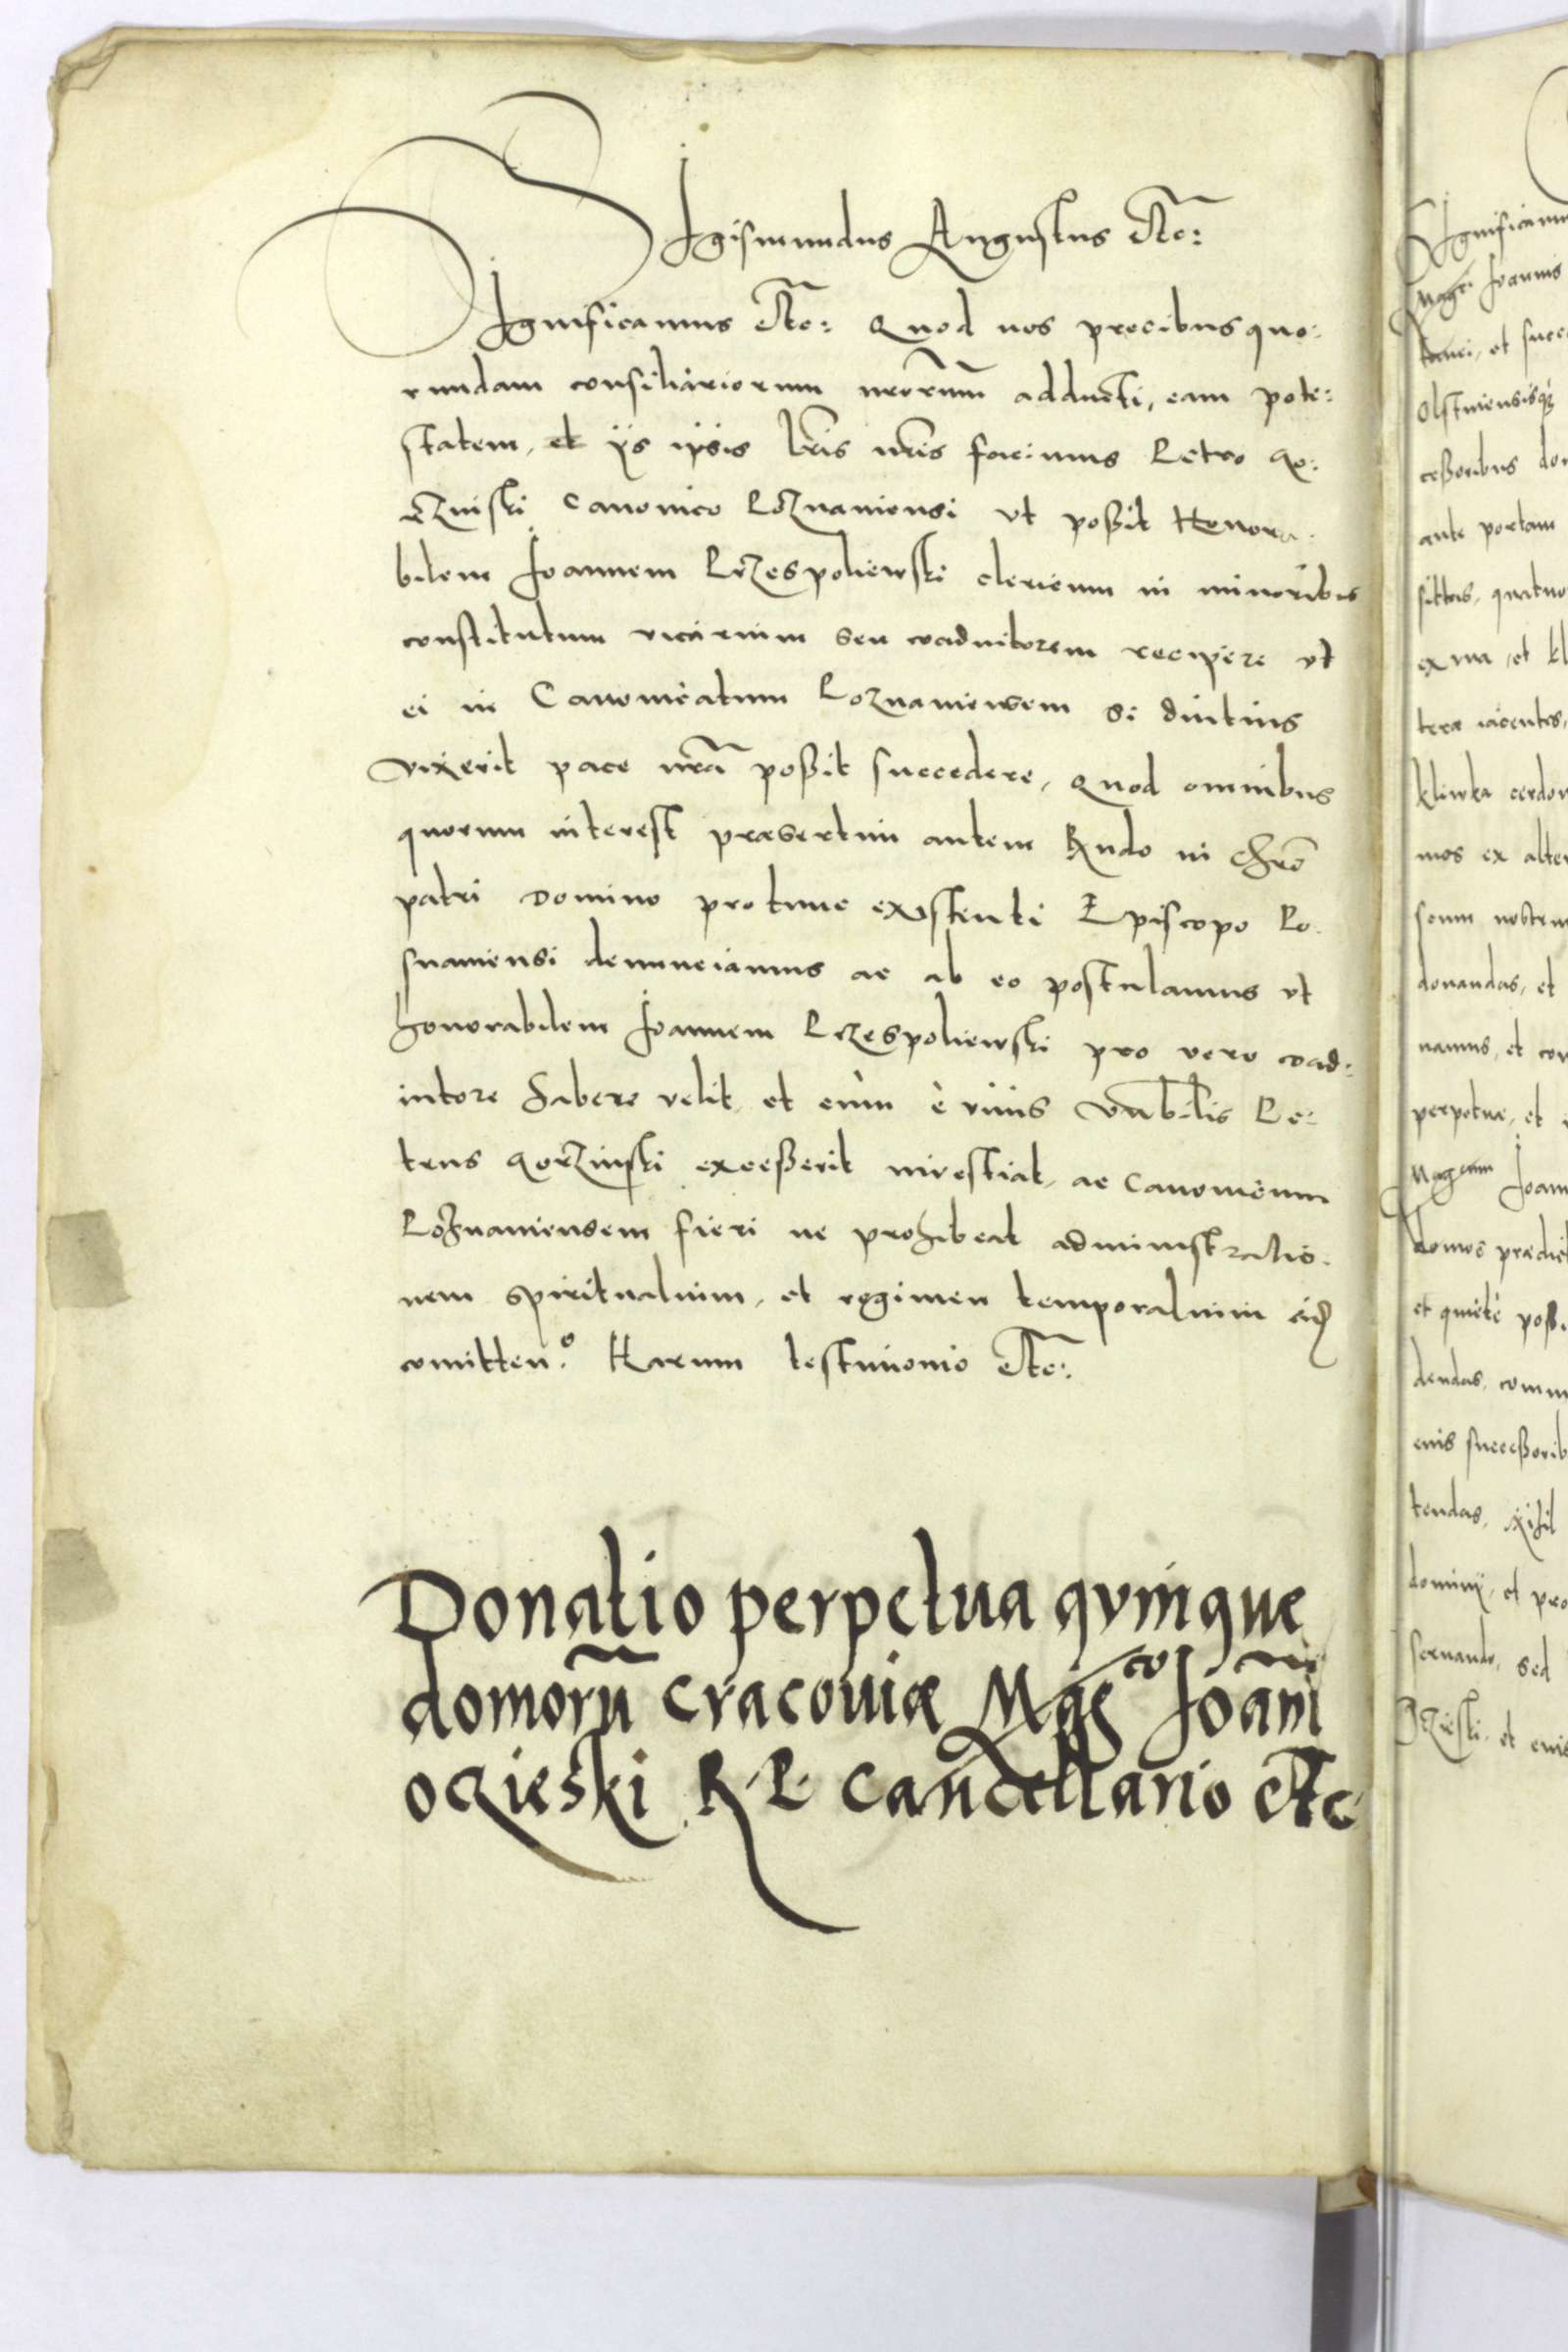 Sigismundus Augustus etc:
Significamus etc: Quod nos precibus quo:
rundam consiliariorum nrorum adducti, eam pote:
statem, et ijs ipsis lris nris facimus Petro Go:
rzinski Canonico Poznaniensi vt poßit Honora:
bilem Joannem Przespoliewski clericum in minoribus
constitutum vicarium seu coadiutorem recipere vt
ei in Canonicatum Poznaniensem si diutius
vixerit pace nra poßit succedere, Quod omnibus
quorum interest præsertim autem Rndo in Chro
patri Domino protunc existenti Episcopo Po:
snaniensi denunciamus ac ab eo postulamus vt
honorabilem Joannem Przespoliewski pro vero coad:
iutore habere velit, et cùm è viuis Vnabilis Pe:
trus Gorzinski exceßerit inuestiat, ac Canonicum
Poznaniensem fieri ne prohibeat administratio:
nem spiritualium, et regimen temporalium eid
comitten.º Harum testimonio etc:
Donatio perpetua qvinque
domorũ Cracouiæ Mag^co Joãni
Oczieski R. P. Cancellario etc
Significamus
Mag^ci Joannis
et succe
Olstinensisq3
ceßoribus do
ante portam
sittas, quatuo
ex vna, et
teræ iacentes,
kliwka cerdon
mos ex alte
scum nostrum
donandas, et
namus, et con
perpetuæ, et
Mag^cum Joan
domos prædic
et quietè poß
dendas, comm
eius succeßorib
tendas, Nihil
dominij, et pro
seruando, sed
Oczieski, et eius